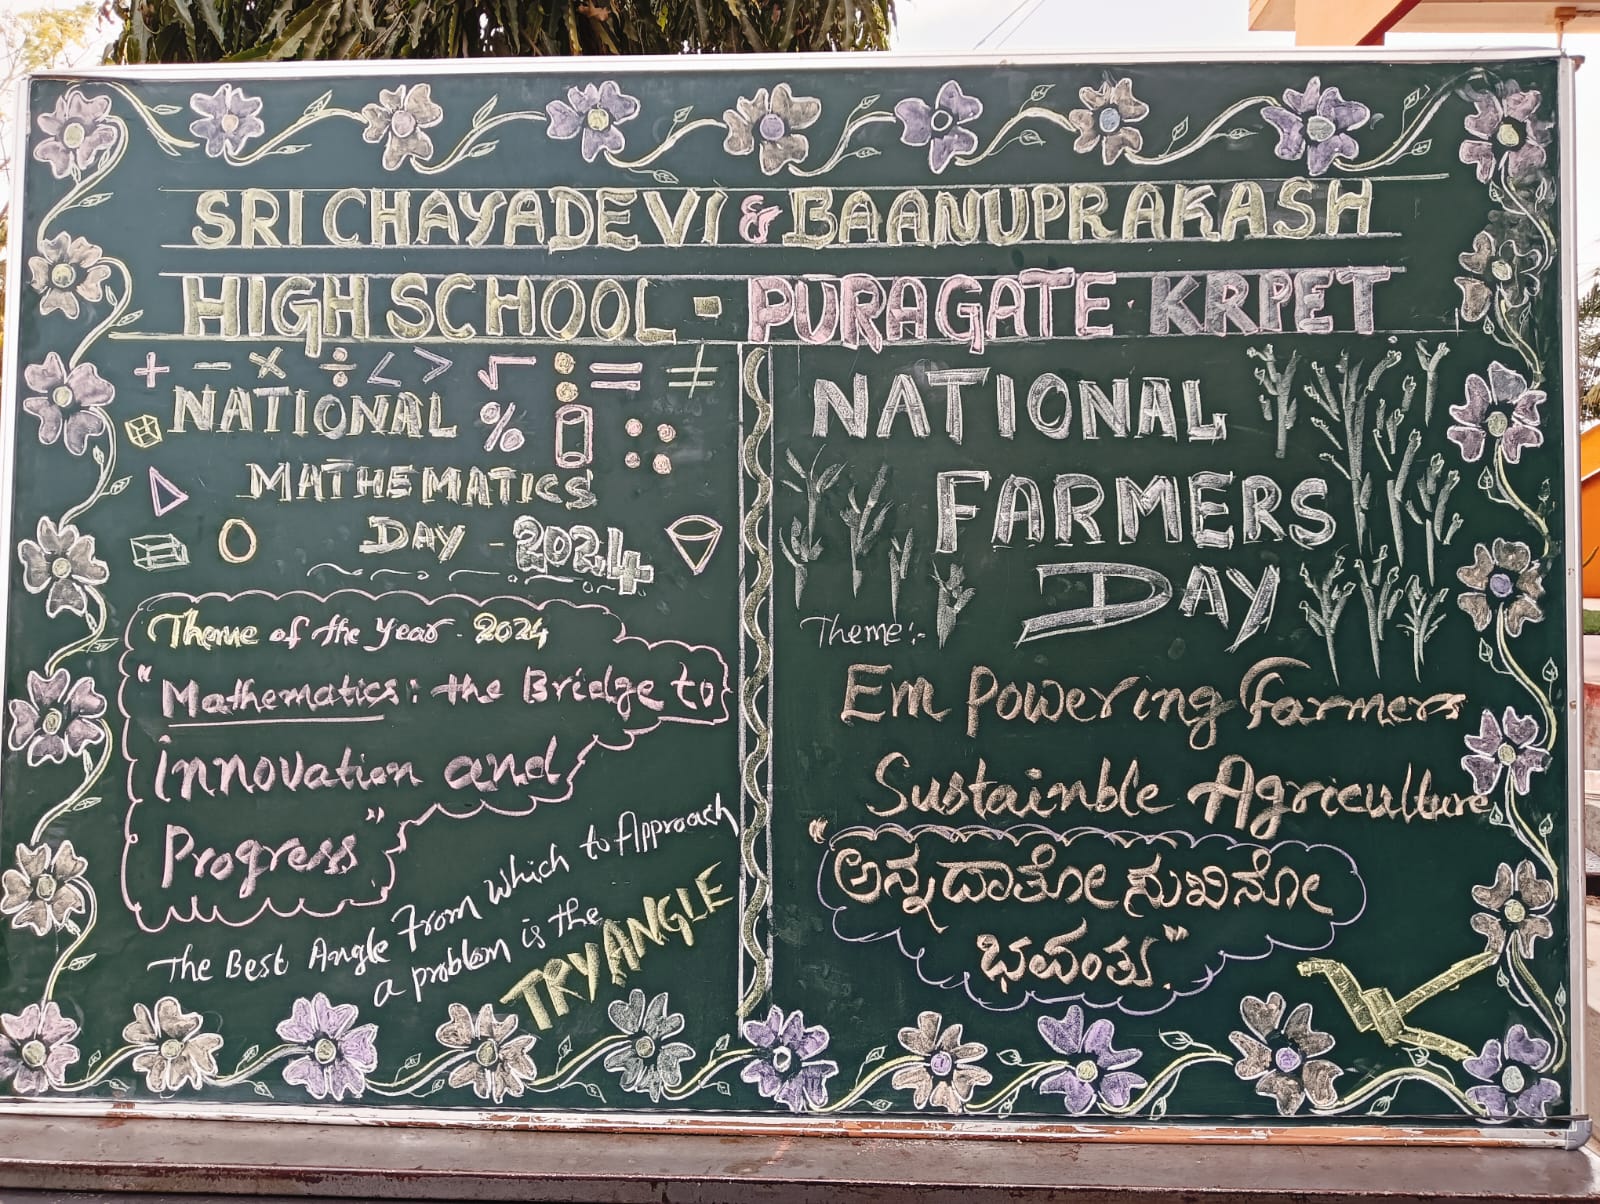 SRI CHAYADEVI & BAANUPRAKASH
HIGH SCHOOL - PURAGATE · KRPET
+ - × ÷ < > √ : = ≠
NATIONAL %
MATHEMATICS
DAY - 2024
Theme of the Year - 2024
"Mathematics: the Bridge to
innovation and
Progress"
The Best Angle From Which to Approach
a problem is the
TRYANGLE
NATIONAL
FARMERS
DAY
Theme:-
Em Powering Farmers
Sustainble Agriculture
"ಅನ್ನದಾತೋ ಸುಖಿನೋ
ಭವಂತು"